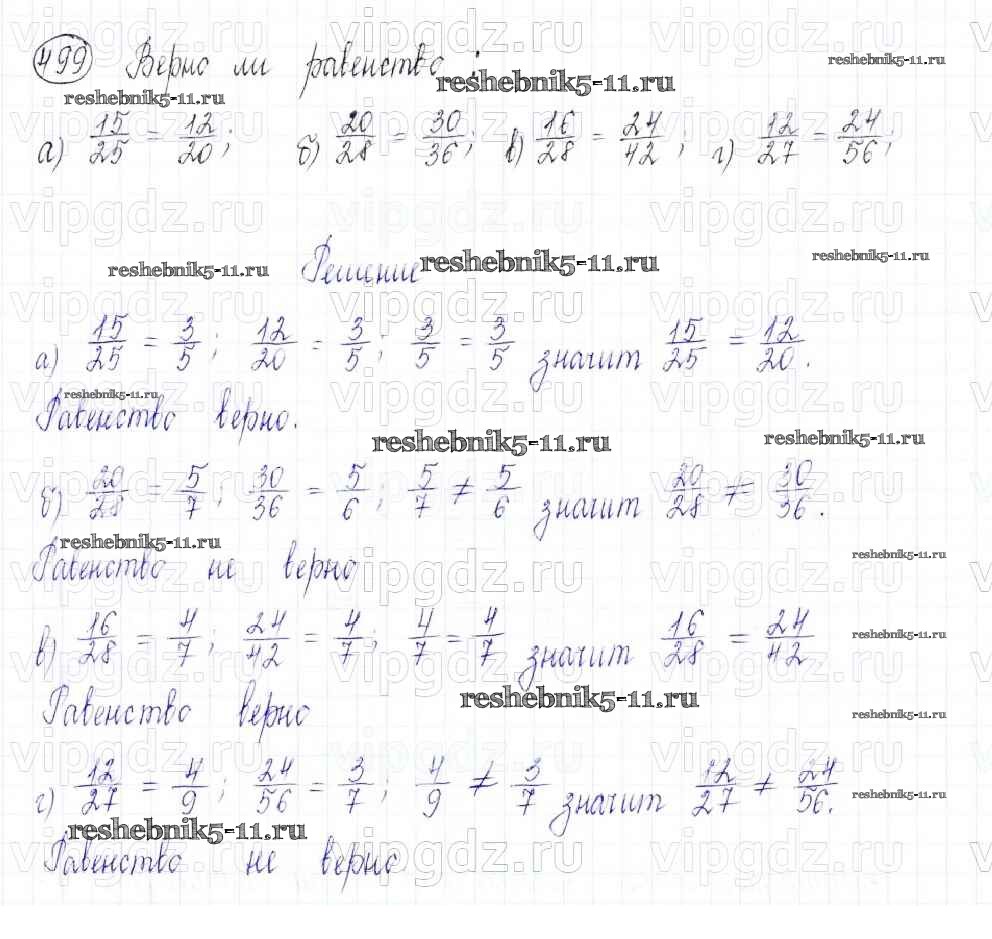 499 Верно ли равенство:
а) 15/25 = 12/20; б) 20/28 = 30/36; в) 16/28 = 24/42; г) 12/27 = 24/56;
Решение
а) 15/25 = 3/5; 12/20 = 3/5; 3/5 = 3/5 значит 15/25 = 12/20.
Равенство верно.
б) 20/28 = 5/7; 30/36 = 5/6; 5/7 ≠ 5/6 значит 20/28 ≠ 30/36.
Равенство не верно
в) 16/28 = 4/7; 24/42 = 4/7; 4/7 = 4/7 значит 16/28 = 24/42
Равенство верно
г) 12/27 = 4/9; 24/56 = 3/7; 4/9 ≠ 3/7 значит 12/27 ≠ 24/56.
Равенство не верно
reshebnik5-11.ru
vipgdz.ru